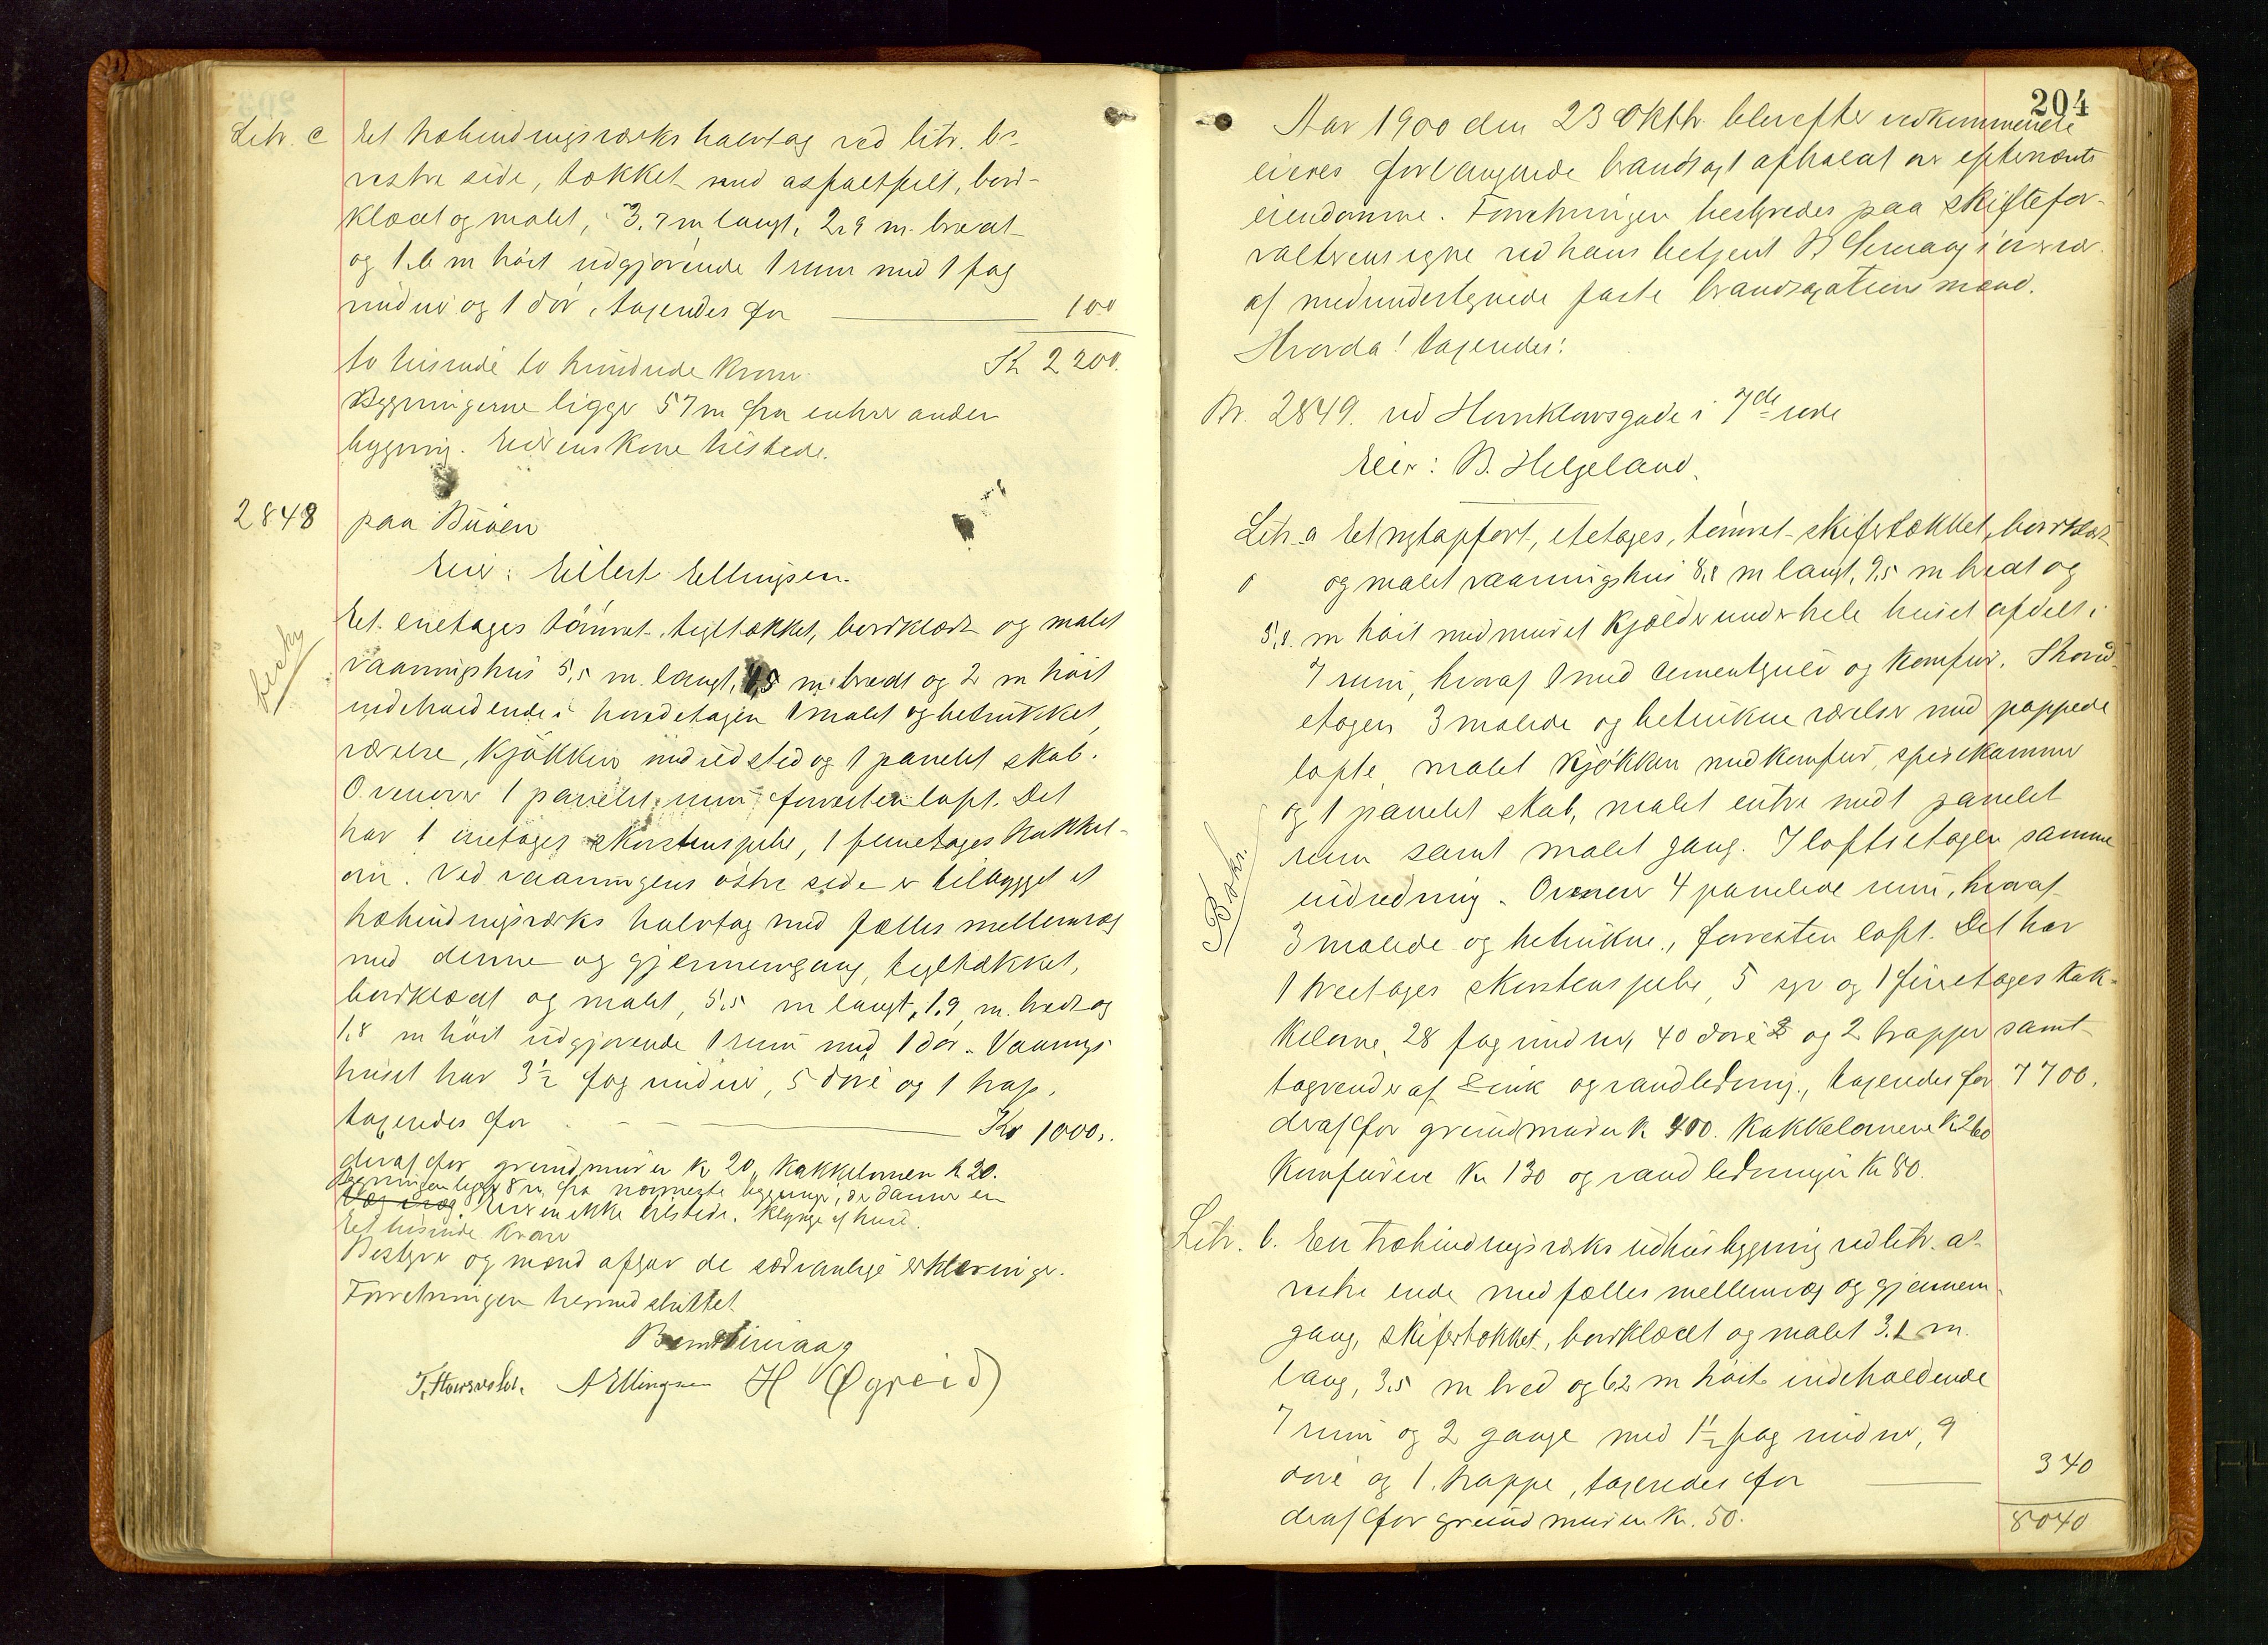 Litr. c Et træbindingsværks halvtag ved litr. b's
vestre side, tækket med asfaltfilt, bord-
klædt og malet, 3.7 m langt, 2,9 m. bredt
og 1.6 m høit udgjørende 1 rum med 1 fag
vinduer og 1 dør, taxeredes for 100
to tusinde to hundrede kroner Kr 2200.
Bygningerne ligger 57 m fra enhver anden
bygning. Eierens kone tilstede.
2848 paa Buøen
Eier: Eilert Ellingsen.
Et enetages tømret, tegltækket, bordklædt og malet
vaaningshus 5,5 m. langt, 4,5 m. bredt og 2 m høit
indeholdende i hovedetagen 1 malet og betrukket
værelse, kjøkken med ildsted og 1 panelet skab.
Ovenover 1 panelet rum, forresten loft. Det
har 1 enetages skorstenspibe, 1 femetages kakkel-
ovn. Ved vaaningens østre side er tilbygget et
træbindingsværks halvtag med fælles mellemvæg
med denne og gjennemgang, tegltækket,
bordklædt og malet, 5,5 m langt, 1,9 m. bredt og
1,8 m høit udgjørende 1 rum med 1 dør. Vaanings-
huset har 3½ fag vinduer, 5 døre og 1 trap.
taxeredes for Kr 1000,.
deraf for grundmuren kr 20, kakkelovnen kr 20.
Bygningen ligger 8 m fra nærmeste bygninger, der danner en
Eieren ikke tilstede. klynge af huse.
Et tusinde kroner
Bestyrer og mænd afgav de sædvanlige erklæringer.
Forretningen hermed sluttet
A Ellingsen H Øgreid
204
Aar 1900 den 23 Oktbr. blev efter vedkommende
eieres forlangende brandtaxt afholdt over efternævnte
eiendomme. Forretningen bestyredes paa skiftefor-
valterens vegne ved hans betjent i overvær
af medundertegnede faste brandtaxationsmænd.
Hvorda! taxeredes:
Nr. 2849. ved Hornklovsgade i 7de rode
Eier: B. Helgeland.
Litr. a Et nyt opført, etages, tømret, skifertækket, bordklædt
og malet vaaningshus 8,8 m langt, 9,5 m bredt og
5,8 m høit med muret kjælder under hele huset afdelt i
7 rum, hvoraf 1 med cementgulv og komfur. I hoved-
etagen 3 malede og betrukne værelser med pappede
lofte, malet kjøkken med komfur, spisekammer
og 1 panelet skab, malet entre med 1 panelet
rum samt malet gang. I loftsetagen samme
indredning. Ovenover 4 panelede rum, hvoraf
3 malede og betrukne, forresten loft. Det har
1 treetages skorstenspibe, 5 syv og 1 fireetages kak-
kelovne, 28 fag vinduer, 40 døre og 2 trapper samt
tagrender af zink og vandledning, taxeredes for 7700.
deraf for grundmuren kr 900. kakkelovnene kr 260
Komfurene kr 130 og vandledningen kr 80.
Bskr.
Litr. b. En træbindingsværks udhusbygning ved litr. a's
vestre ende med fælles mellemvæg og gjennem-
gang, skifertækket, bordklædt og malet 3.1 m.
lang, 3,5 m bred og 6.2 m høit indeholdende
7 rum og 2 gange med 1½ fag vinduer, 9
døre og 1 trappe, taxeredes for 340
deraf for grundmuren kr. 50. 8040